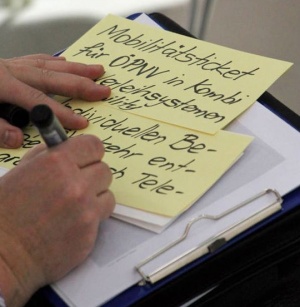 Mobilitätsticket
für ÖPNV in Kombi
leihsystemen
bility
dividuellen Be-
kehr ent-
ch Tele-